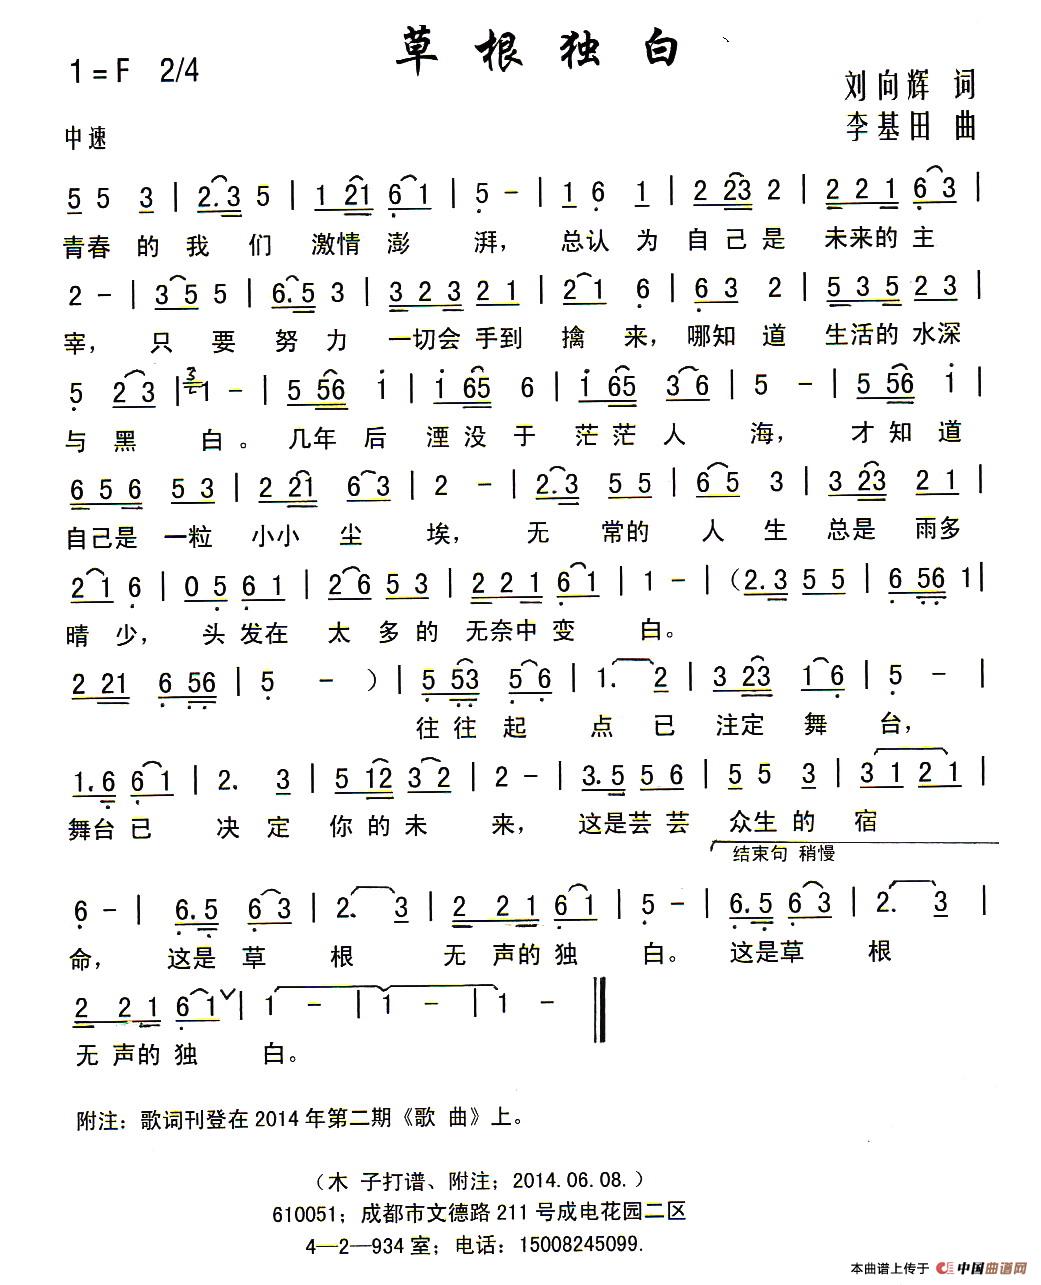 草根独白
1=F 2/4
刘向辉 词
李基田 曲
中速
5 5 3 | 2.3 5 | 1 21 6 1 | 5 - | 1 6 1 | 2 23 2 | 2 2 1 6 3 |
青春 的 我 们 激情 澎 湃， 总认 为 自 己 是 未来的 主
2 - | 3 5 5 | 6.5 3 | 3 2 3 2 1 | 2 1 6 | 6 3 2 | 5 3 5 2 3 |
宰， 只 要 努 力 一切会 手到 擒 来，哪知 道 生活的 水深
5 2 3 | 3 1 - | 5 56 i | i 65 6 | i 65 3 6 | 5 - | 5 56 i |
与 黑 白。 几年 后 湮 没 于 茫 茫 人 海， 才 知 道
6 5 6 5 3 | 2 21 6 3 | 2 - | 2.3 5 5 | 6 5 3 | 3 23 2 1 |
自己是 一粒 小小 尘 埃， 无 常的 人 生 总是 雨多
2 1 6 | 0 5 6 1 | 2 6 5 3 | 2 2 1 6 1 | 1 - | （2.3 5 5 | 6 56 1 |
晴 少， 头 发在 太 多 的 无奈中 变 白。
2 21 6 56 | 5 - ） | 5 53 5 6 | 1. 2 | 3 23 1 6 | 5 - |
往 往 起 点 已 注定 舞 台，
1.6 6 1 | 2. 3 | 5 12 3 2 | 2 - | 3.5 5 6 | 5 5 3 | 3 1 2 1 |
舞台 已 决 定 你 的 未 来， 这是芸 芸 众生 的 宿
结束句 稍慢
6 - | 6.5 6 3 | 2. 3 | 2 2 1 6 1 | 5 - | 6.5 6 3 | 2. 3 |
命， 这是 草 根 无 声的 独 白。 这是草 根
2 2 1 6 1 ∨ | 1 - | 1 - | 1 - ‖
无 声的 独 白。
附注：歌词刊登在 2014 年第二期《歌 曲》上。
（木 子打谱、附注；2014.06.08.）
610051；成都市文德路 211 号成电花园二区
4—2—934 室；电话：15008245099.
本曲谱上传于 中国曲谱网